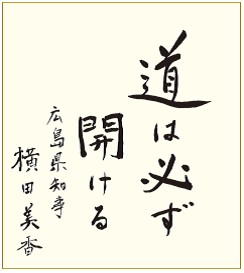 道は必ず
開ける
広島県知事
横田美香